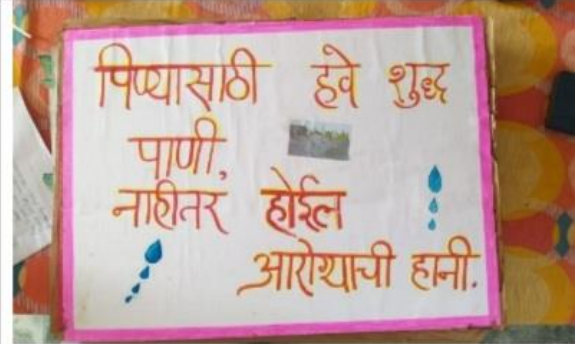 पिण्यासाठी हवे शुद्ध
पाणी,
नाहीतर होईल
आरोग्याची हानी.